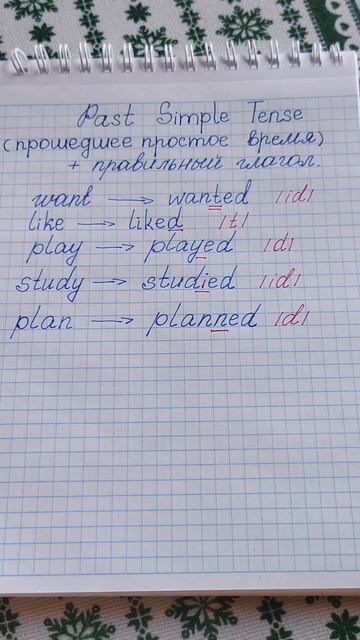 Past Simple Tense
(прошедшее простое время)
+ правильный глагол.
want → wanted /id/
like → liked /t/
play → played /d/
study → studied /id/
plan → planned /d/